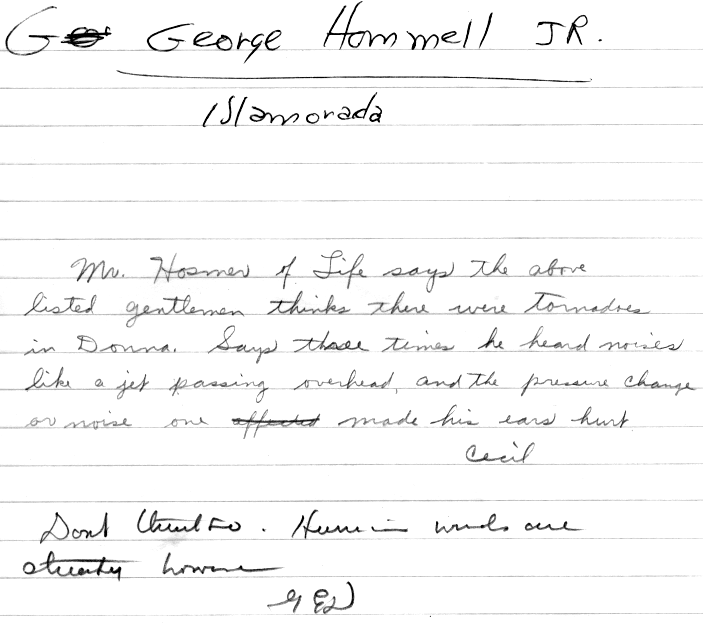 G George Hommell JR.
Islamorada
Mr. Hosmer of Life says the above
listed gentlemen thinks there were tornadoes
in Donna. Says three times he heard noises
like a jet passing overhead, and the pressure change
or noise one affected made his ears hurt
Cecil
Dont think so. winds are